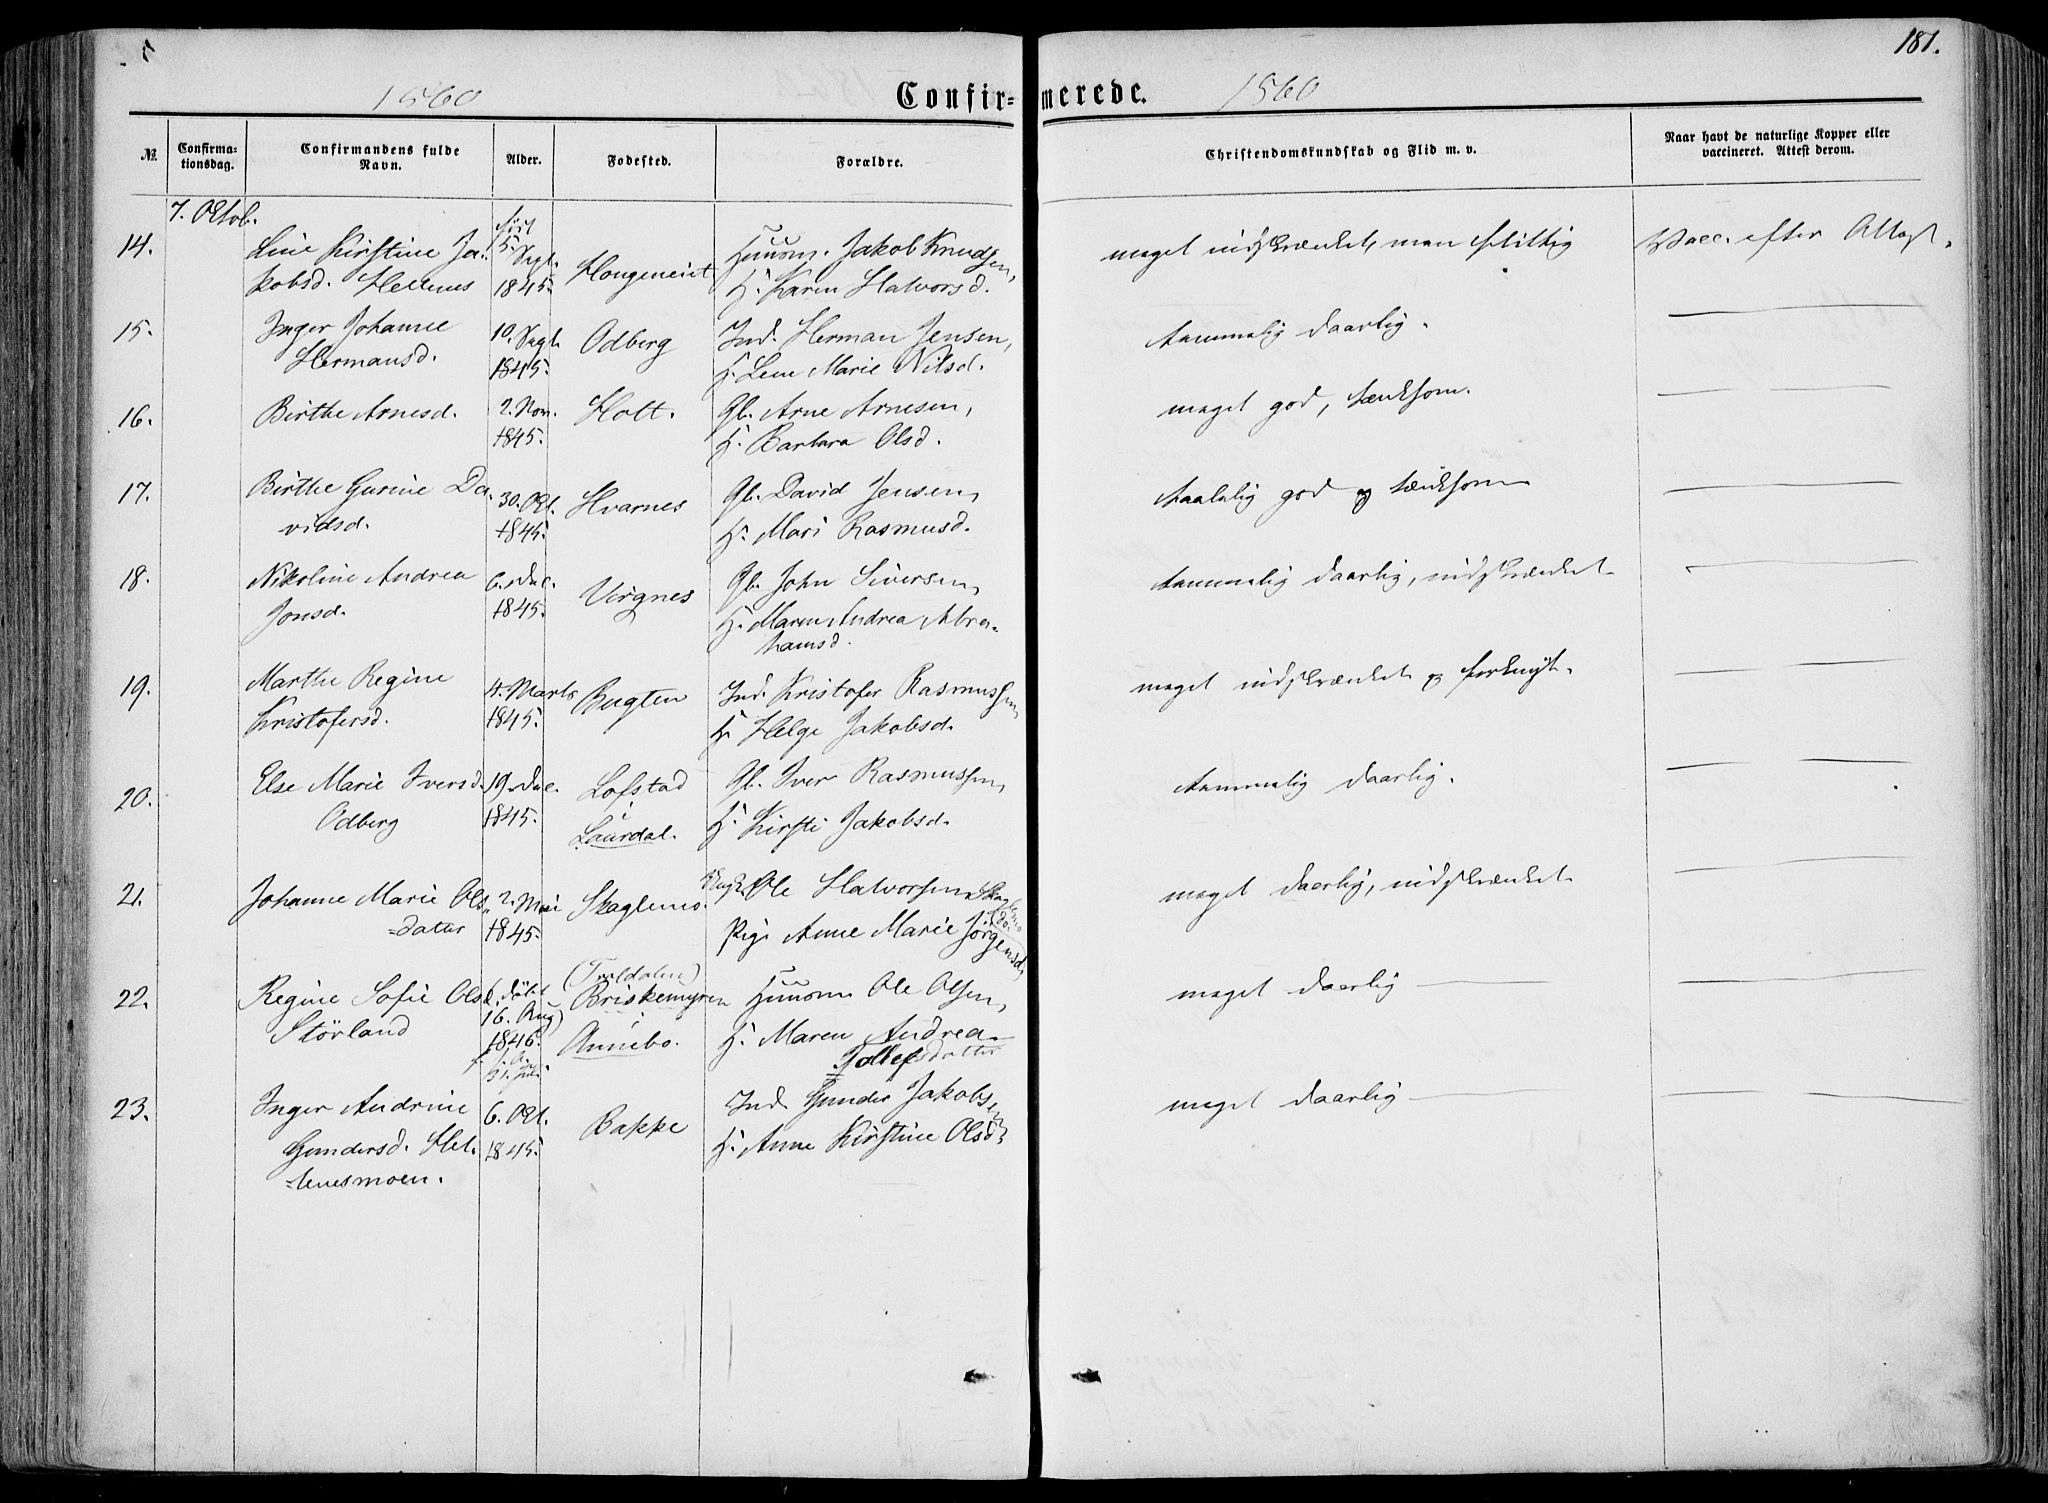 181.
1860 Confirmerede. 1860
№ Confirmationsdag. Confirmandens fulde Navn. Alder. Fødested. Forældre. Christendomskundskab og Flid m. v. Naar havt de naturlige Kopper eller vaccineret. Attest derom.
7. Oktob.
14. Line Kirstine Ja- født 5. Sept. Huusm. Jakob Knudsen, meget indskrænket, men flittig Vacc. efter Attest.
kobsd. 1845. H. Karen Halvorsd.
15. Inger Johanne 10. Sept. Odberg Ind. Herman Jensen, temmelig daarlig.
Hermansd. 1845. H. Lene Marie Nilsd.
16. Birthe Arnesd. 2. Nov. Holt. Gb. Arne Arnesen, meget god, tænksom.
1845. H. Barbara Olsd.
17. Birthe Gurine Da- 30. Okt. Hvarnes Gb. David Jensen, taalelig god og tænksom
vidsd. 1845. H. Mari Rasmusd.
18. Nikoline Andrea 6. Dec. Virgnes Gb. John Siversen, temmelig daarlig, indskrænket
Jonsd. 1845. H. Maren Andrea Abra-
hamsd.
19. Marthe Regine 4. Marts Bugten Ind. Kristofer Rasmussen, meget indskrænket og forknyt.
Kristofersd. 1845. H. Helge Jakobsd.
20. Else Marie Iversd. 19. Dec. Lofstad Gb. Iver Rasmussen, temmelig daarlig.
Odberg 1845. i Laurdal. H. Kirsti Jakobsd.
21. Johanne Marie Ols- 2. Mai Skaglemo. Ungk. Ole Halvorsen Skaglemo meget daarlig, indskrænket
datter 1845. Pige Anne Marie Jörgensd.
(Traldalen)
22. Regine Sofie Olsd. (døbt Briskemyren Huusm. Ole Olsen, meget daarlig
Störland 16. Aug) 1846. i Annebo. H. Maren Andrea
Tollefsdatter
23. Inger Andrine 6. Okt. Bakke Ind. Gunder Jakobsen meget daarlig
Gundersd. Hel- 1845. H. Anne Kirstine Olsd.
lenesmoen.